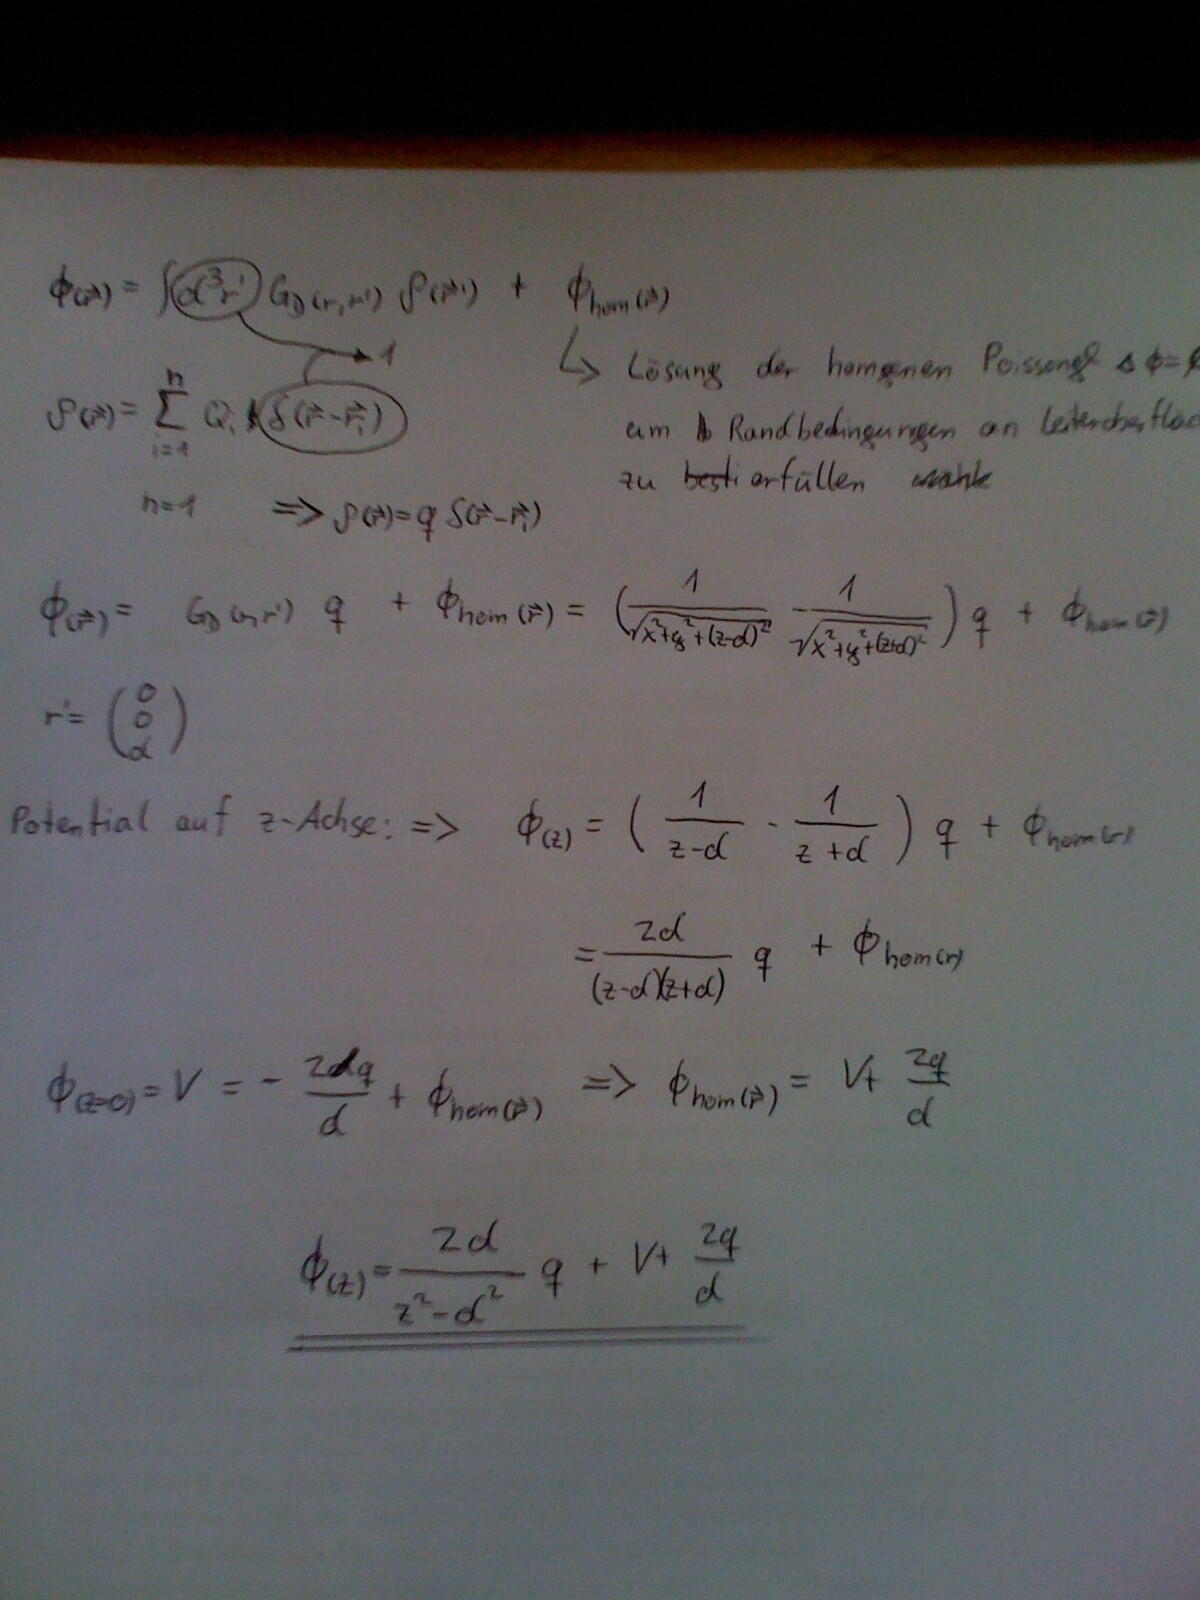 ϕ(r⃗) = ∫d³r' G_D(r,r') ρ(r⃗') + ϕ_hom(r⃗)
→ 1
↳ Lösung der homgenen Poissongl Δϕ=
ρ(r⃗) = Σ_{i=1}^{n} Q_i δ(r⃗-r⃗_i)
um Randbedingungen an Leiteroberfläc
zu besti erfüllen
n=1 ⇒ ρ(r⃗)=q δ(r⃗-r⃗_i)
ϕ(r⃗) = G_D(r,r') q + ϕ_hom(r⃗) = (1/√(x²+y²+(z-d)²) - 1/√(x²+y²+(z+d)²)) q + ϕ_hom(r⃗)
r' = (0 0 d)
Potential auf z-Achse: ⇒ ϕ(z) = (1/(z-d) - 1/(z+d)) q + ϕ_hom(r)
= 2d/((z-d)(z+d)) q + ϕ_hom(r)
ϕ(z=0) = V = - 2dq/d + ϕ_hom(r⃗) ⇒ ϕ_hom(r⃗) = V+ 2q/d
ϕ(z) = 2d/(z²-d²) q + V+ 2q/d